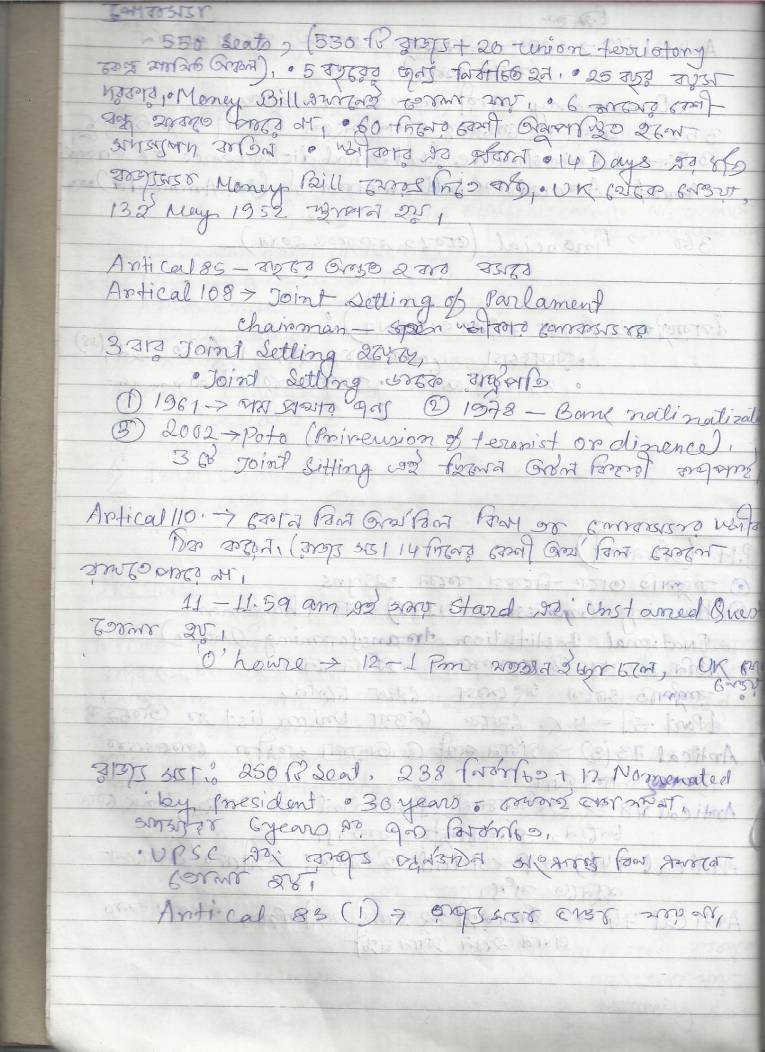 লোকসভা
550 Seats, (530 টি রাজ্য + 20 union terriotory
কেন্দ্র শাসিত অঞ্চল), • 5 বছরের জন্য নির্বাচিত হন, • 25 বছর বয়স
দরকার, • Money Bill এখানেই তোলা যায়, • 6 মাসের বেশী
বন্ধ থাকতে পারে না, • 60 দিনের বেশী অনুপস্থিত হলে
সদস্যপদ বাতিল • স্পীকার এর প্রধান • 14 Days এর মধ্যে
রাজ্যসভা Money Bill ফেরত দিতে বাধ্য, • UK থেকে নেওয়া,
13ই May 1952 স্থাপন হয়,
Artical 85 – বছরে অন্তত 2 বার বসবে
Artical 108 → Joint Setling of Parlament
Chairman – স্পীকার লোকসভার
3 বার Joint Setling হয়েছে,
• Joint Setling ডাকে রাষ্ট্রপতি
① 1961 → পন প্রথার জন্য ② 1978 – Bank
③ 2002 → Poto (Prireusion of terorist or dinence),
3 টে Joint Sitting এই ছিলেন অটল বিহারী
Artical 110. → কোন বিল অর্থবিল কিনা তা লোকসভার
ঠিক করেন, (রাজ্য সভা 14 দিনের বেশী অর্থ বিল ফেলে
রাখতে পারে না,
11 – 11.59 am এই সময় Stard এবং Unstarred
তোলা হয়,
'O' howre → 12 – 1 Pm চলে, UK
নেওয়া
রাজ্য সভা : 250 টি Seat, 238 নির্বাচিত + 12 Nomenated
by President • 30 years,
সদস্যরা 6 years এর জন্য নির্বাচিত,
• UPSC এবং রাজ্য পুনর্গঠন সংক্রান্ত বিল এখানে
তোলা হয়,
Artical 83 (1) → রাজ্যসভা ভাঙা যায় না,